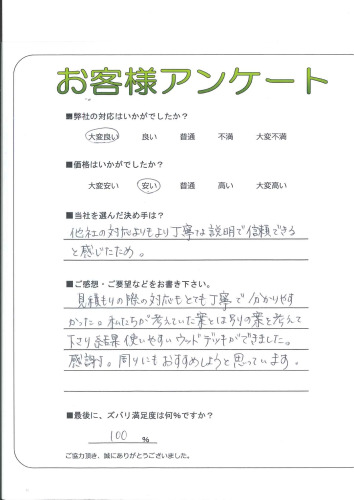 お客様アンケート
■弊社の対応はいかがでしたか?
大変良い 良い 普通 不満 大変不満
■価格はいかがでしたか?
大変安い 安い 普通 高い 大変高い
■当社を選んだ決め手は?
他社の対応よりもより丁寧な説明で信頼できる
と感じたため。
■ご感想・ご要望などをお書き下さい。
見積もりの際の対応もとても丁寧で分かりやす
かった。私たちが考えていた案とは別の案を考えて
下さり結果使いやすいウッドデッキができました。
感謝す。周りにもおすすめしようと思っています。
■最後に、ズバリ満足度は何%ですか?
100 %
ご協力頂き、誠にありがとうございました。